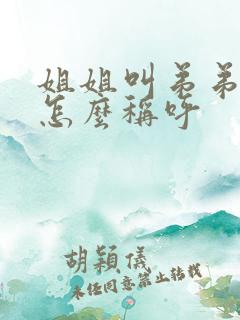 姐姐叫弟弟
怎麼稱呼
胡穎儀
未任同意禁止转载